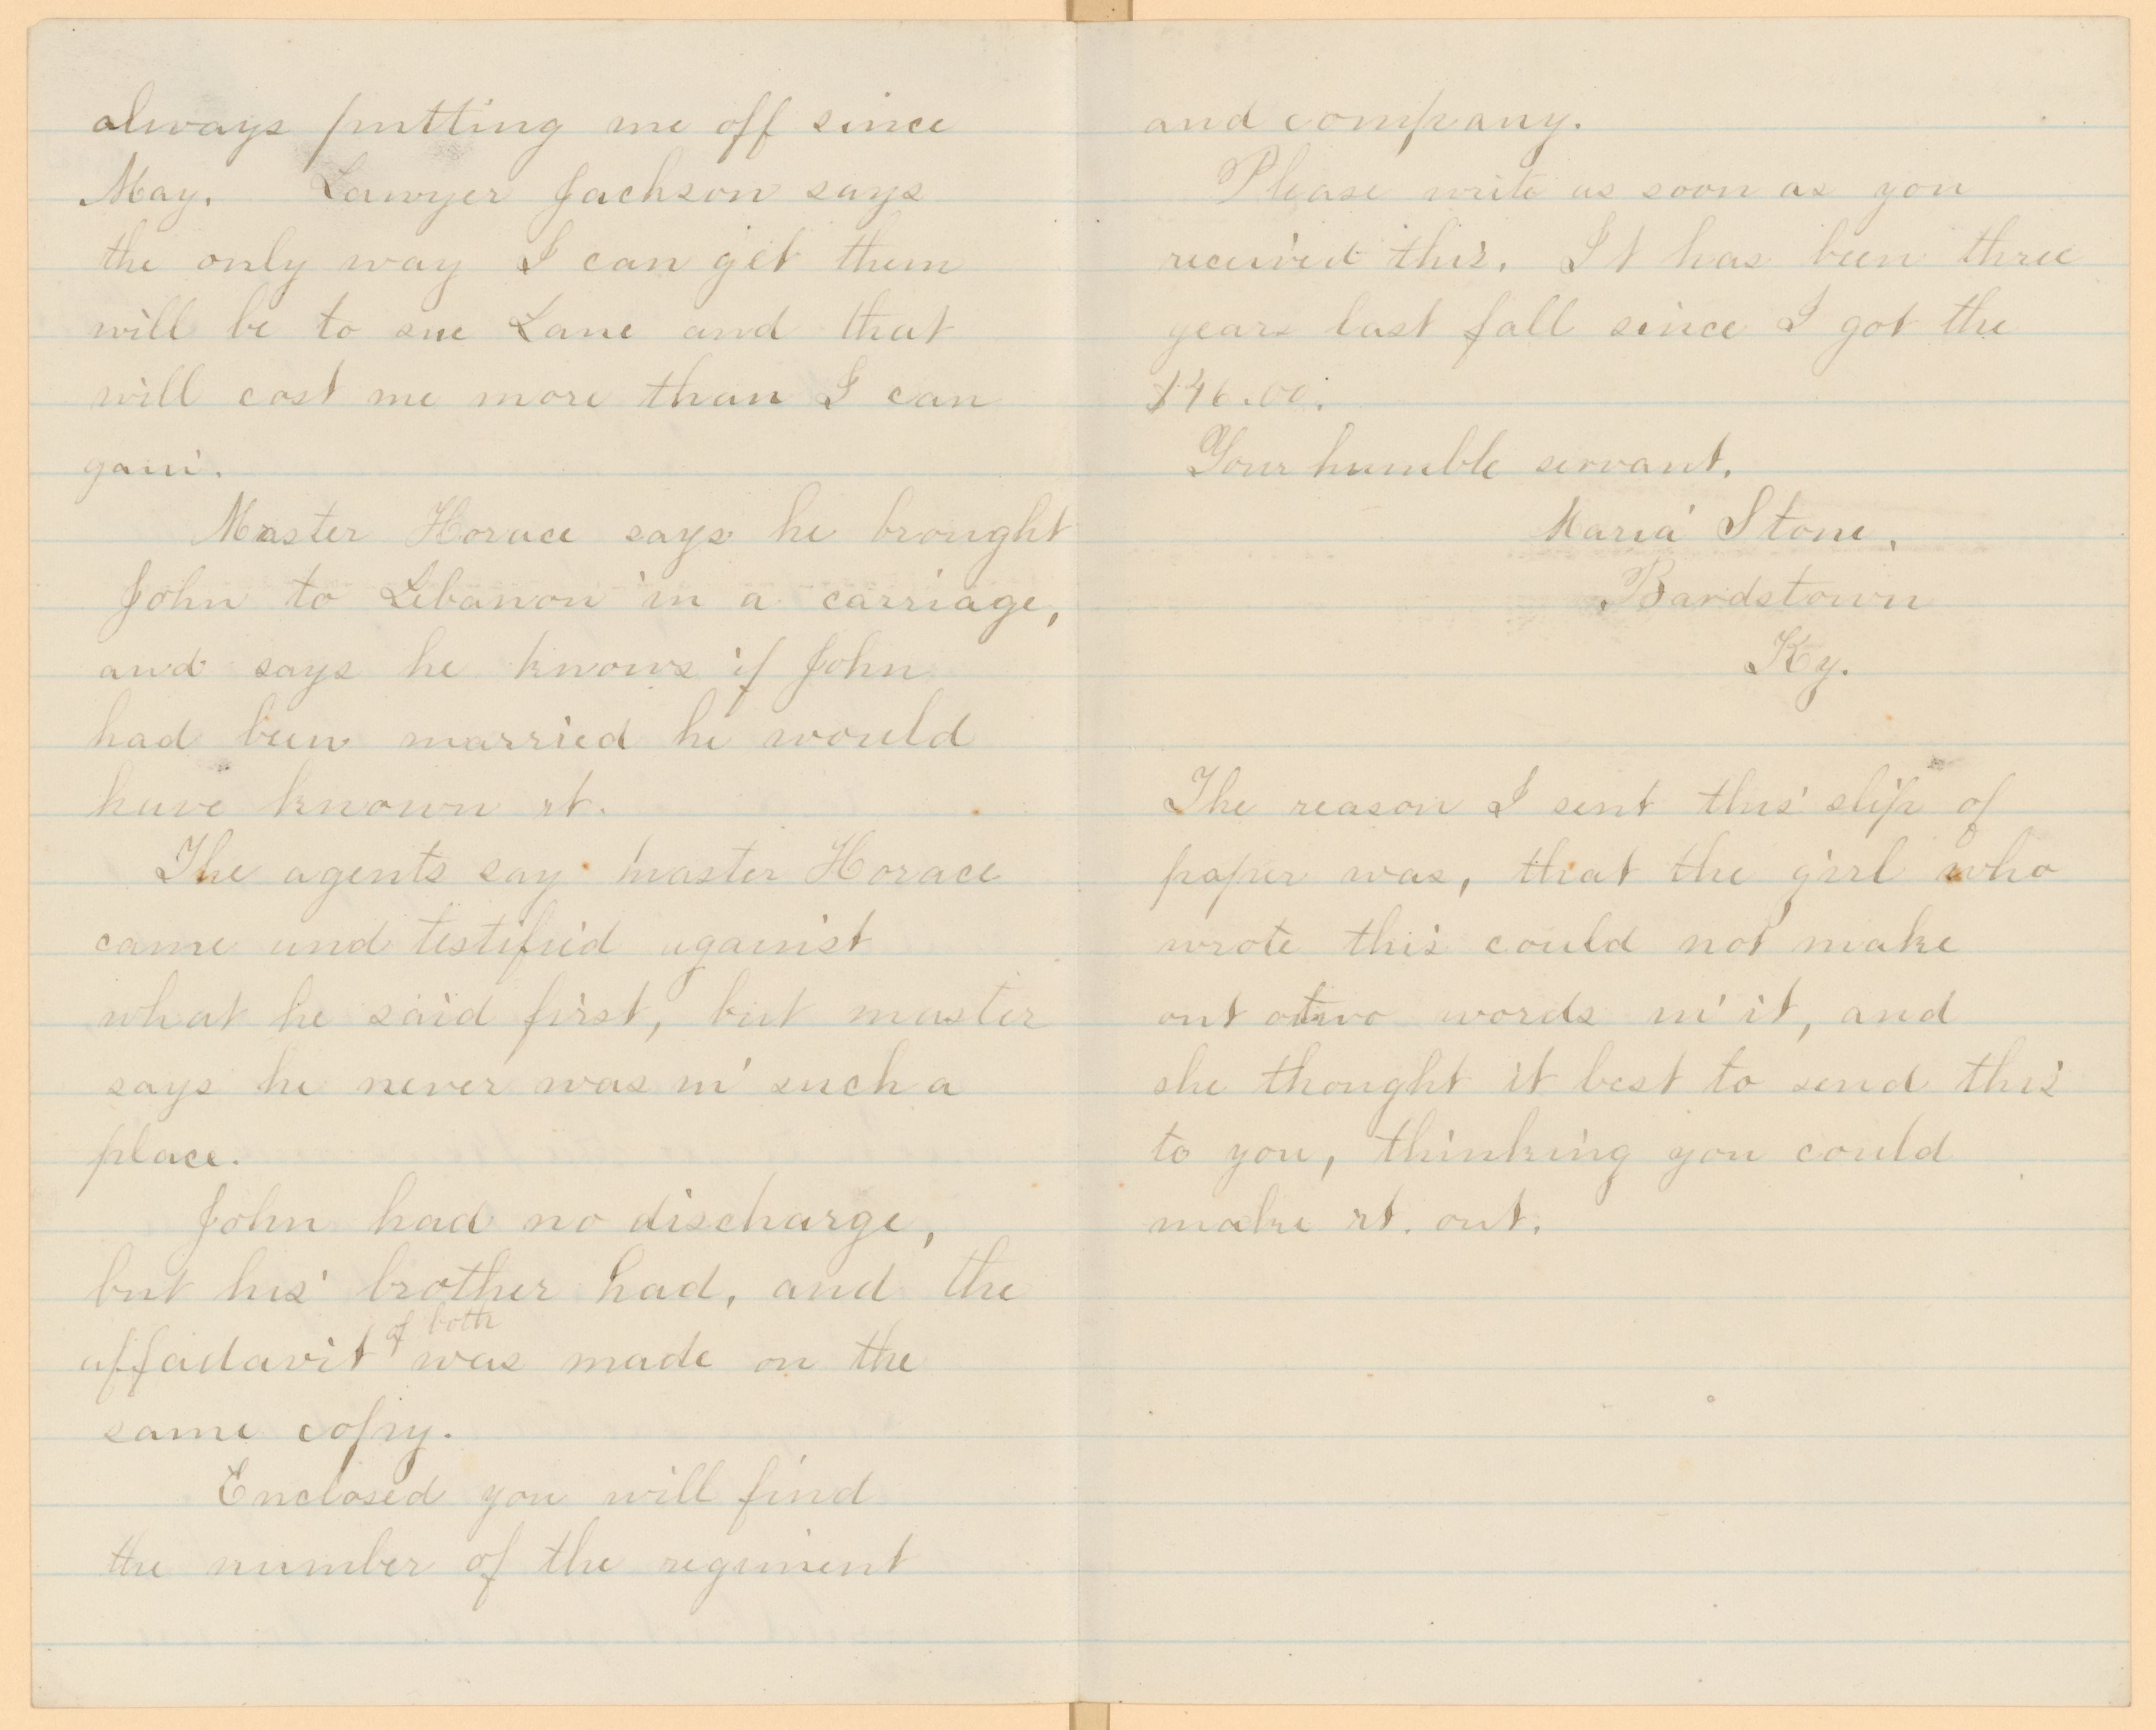 always putting me off since
May. Lawyer Jackson says
the only way I can get them
will be to sue Lane and that
will cost me more than I can
gain.
Master Horace says he brought
John to Lebanon in a carriage,
and says he knows if John
had been married he would
have known it.
The agents say master Horace
came and testified against
what he said first, but master
says he never was in such a
place.
John had no discharge,
but his brother had, and the
of both
affadavit was made on the
same copy.
Enclosed you will find
the number of the regiment
and company.
Please write as soon as you
received this. It has been three
years last fall since I got the
Your humble servant,
Maria Stone,
Bardstown
Ky.
The reason I sent this slip of
paper was, that the girl who
wrote this could not make
out two words in it, and
she thought it best to send this
to you, thinking you could
make it out.